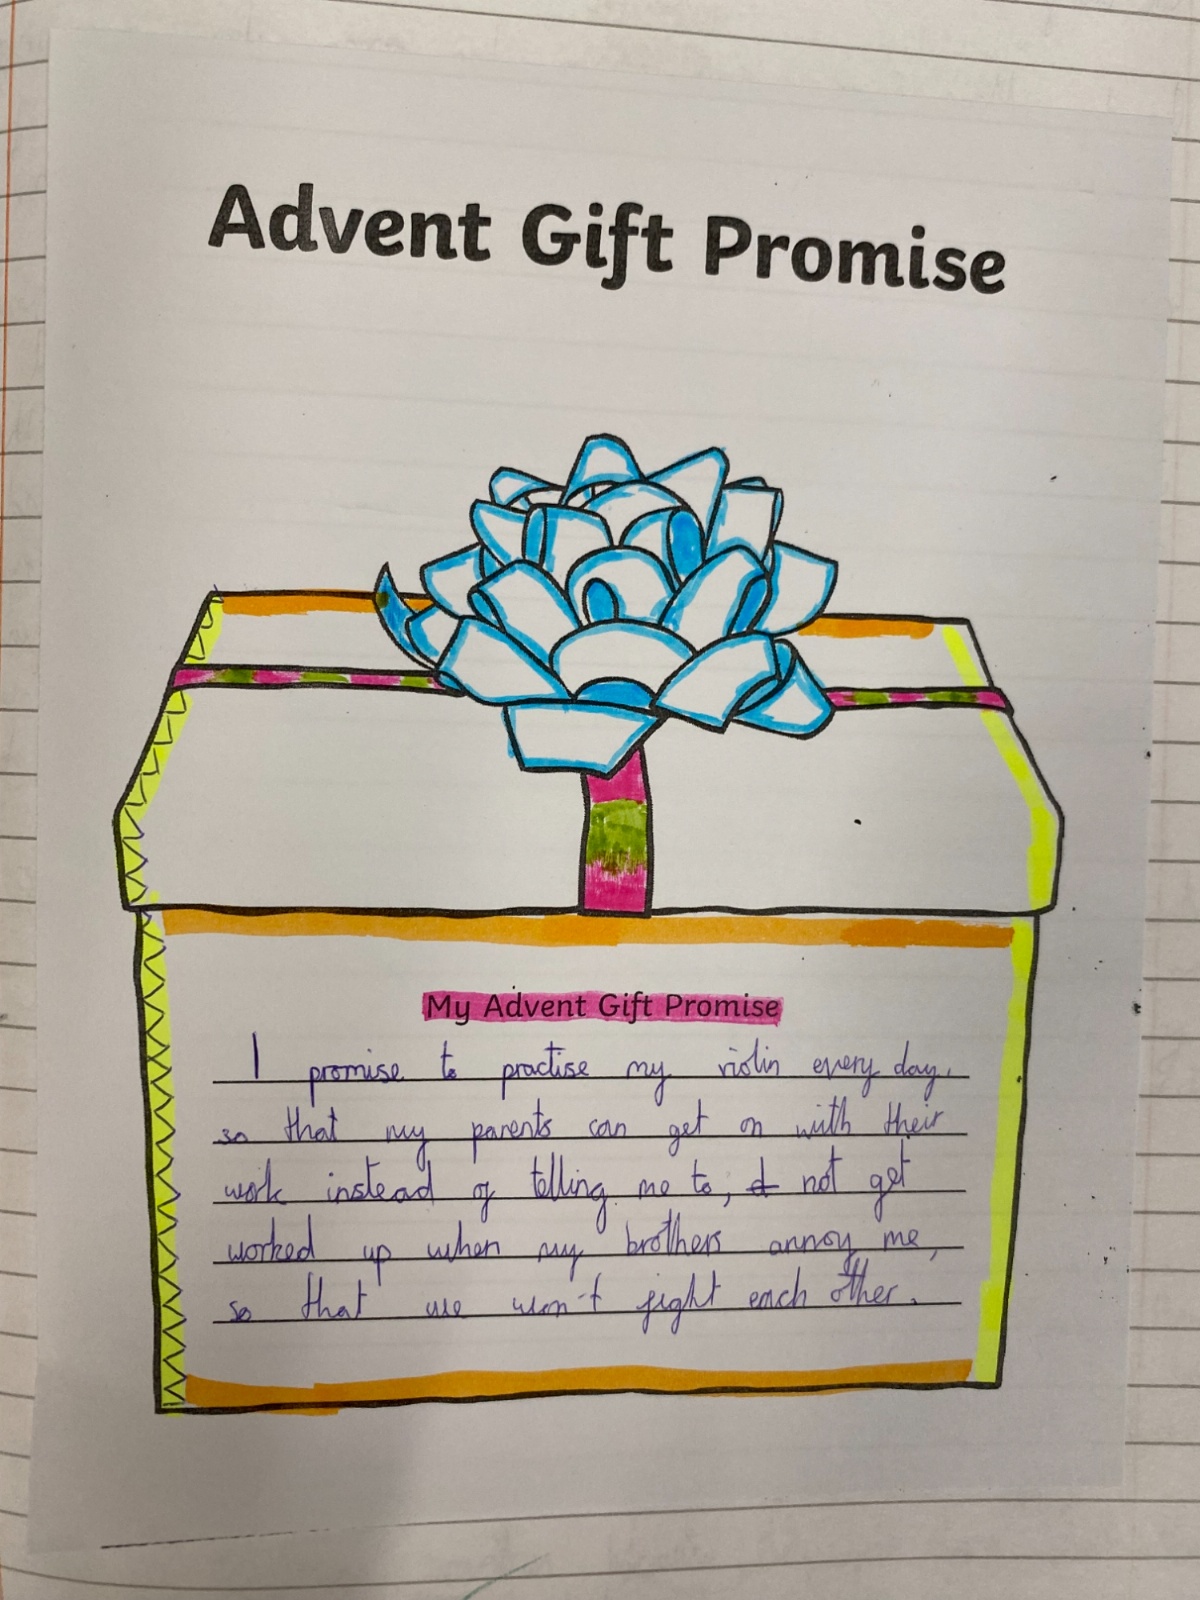 Advent Gift Promise
My Advent Gift Promise
I promise to practise my violin every day,
so that my parents can get on with their
work instead of telling me to, not get
worked up when my brothers annoy me,
so that we won't fight each other.